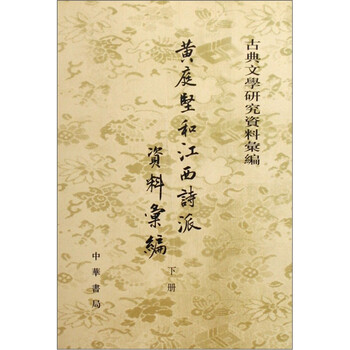 古典文學研究資料彙編
黃庭堅和江西詩派
資料彙編
下册
中華書局